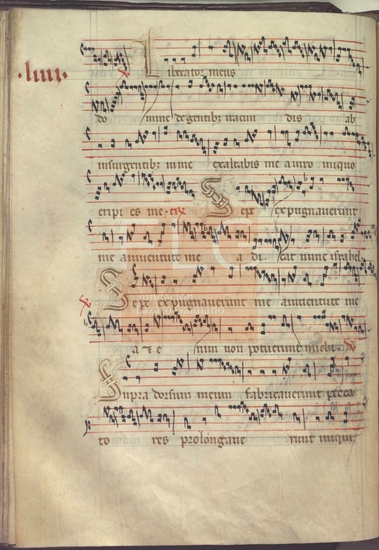 ·liiii·
Liberator meus
do mine de gentibꝫ iracun dis ab
insurgentibꝫ in me exaltabis me a viro iniquo
eripi es me. Sepe expugnaverunt
me a iuventute me a dicat nunc israhel
Sepe expugnaverunt me a iuventute me
a et e nim non potuerunt michi
Supra dorsum meum fabricaverunt pecca
to res prolongave runt iniqui